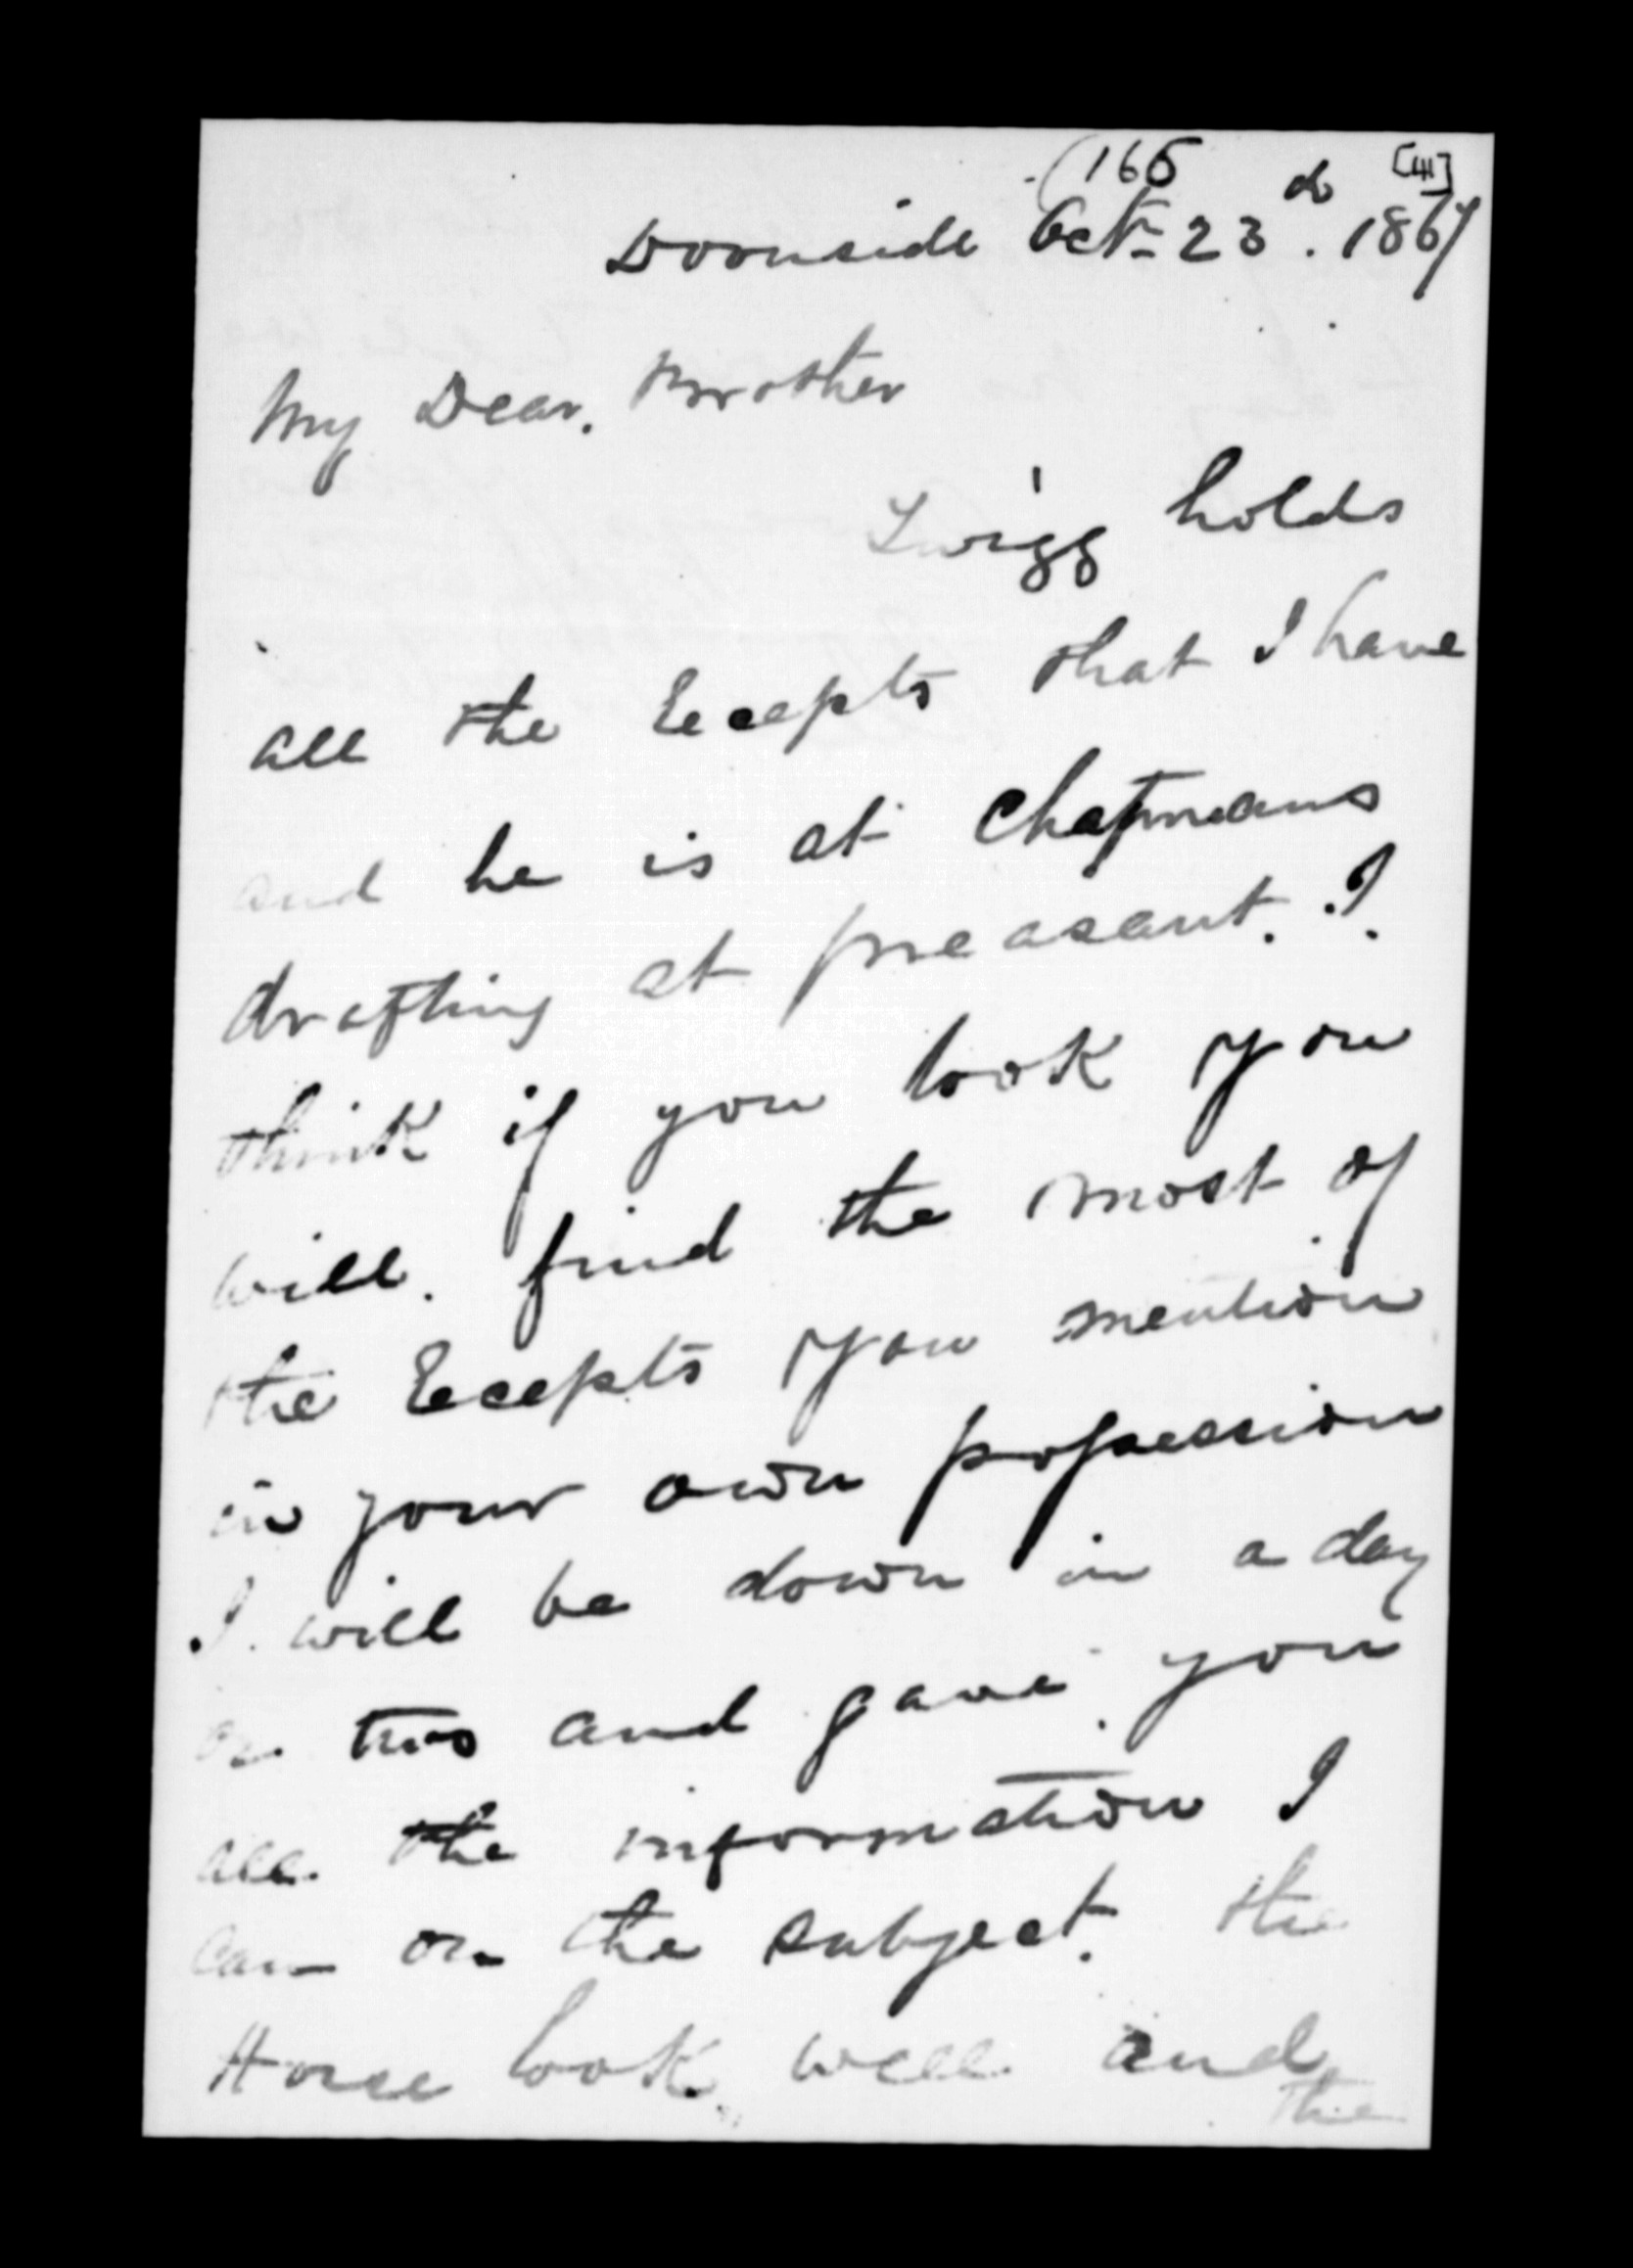 (165 [41]
Doonside Octr 23d. 1867
My Dear. Brother
Twigg holds
all the Receepts that I have
and he is at Chapmans
drafting at preasant. I
think if you look you
will. find the most of
the Receepts you mention
in your own possession
I. will be down in a day
or two and gave you
all the information I
can on the subject. the
Horse look well and
the